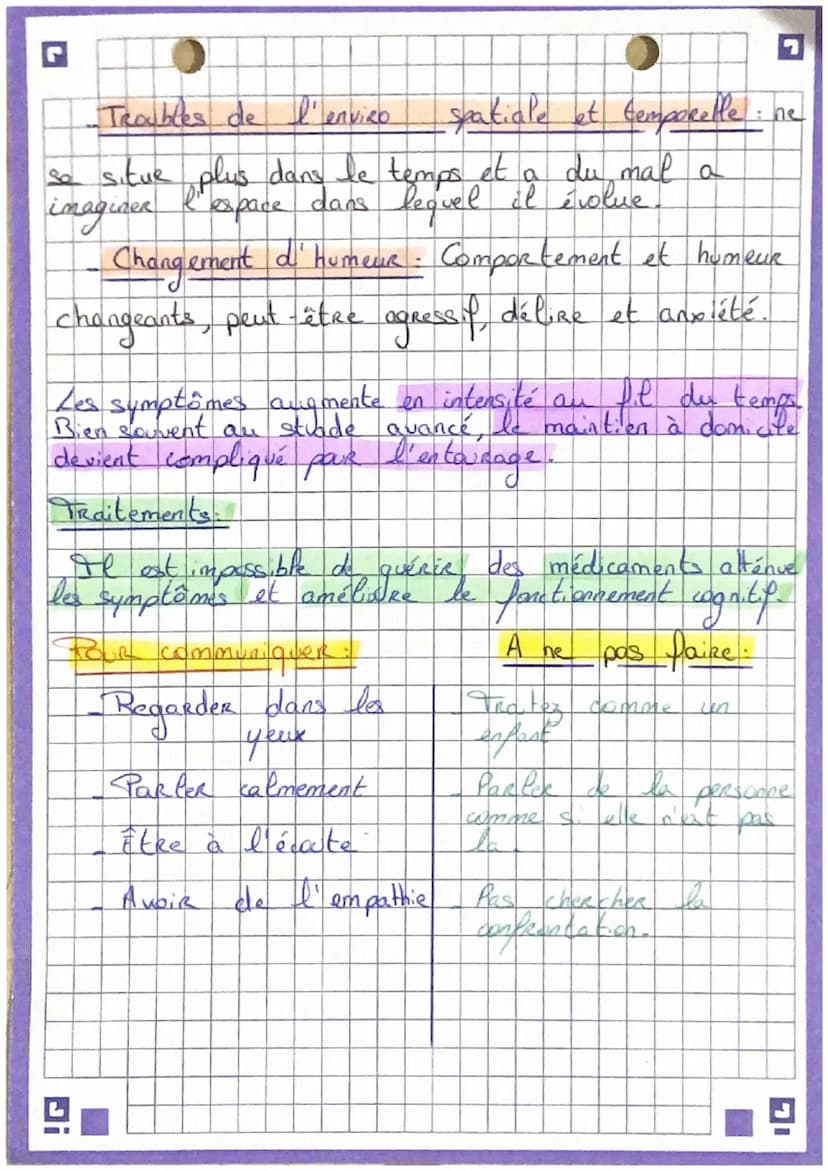 - Troubles de l'enviro spatiale et temporelle : ne
se situe plus dans le temps et a du mal a
imaginer l'espace dans lequel il évolue.
- Changement d'humeur : Comportement et humeur
changeants, peut-être agressif, délire et anxiété.
Les symptômes augmente en intensité au fil du temps.
Bien souvent au stade avancé, le maintien à domicile
devient compliqué par l'entourage.
Traitements:
Il est impossible de guérir, des médicaments atténue
les symptômes et améliore le fonctionnement cognitif.
Pour communiquer :
- Regarder dans les
yeux
- Parler calmement
- Être à l'écoute
- Avoir de l'empathie
A ne pas faire :
- Traitez comme un
enfant
- Parler de la personne
comme si elle n'est pas
la.
- Pas chercher la
confrontation.